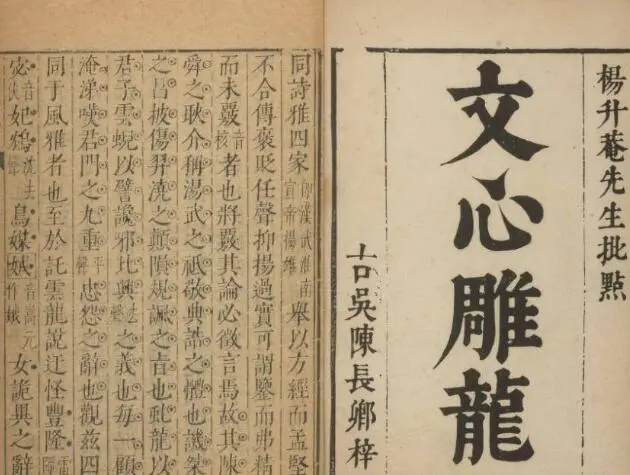 楊升菴先生批點
文心雕龍
古吳陳長卿梓
同詩雅四家即漢武淮南宣帝楊雄舉以方經而孟堅
不合傳褒貶任聲抑揚過實可謂鑒而弗精
而未覈音核者也將覈其論必徵言焉故其陳
舜之耿介稱湯武之祗敬典誥之體也譏桀
之昌披傷羿澆之顛隕規諷之旨也虬龍以
君子雲蜺以譬讒邪比興去聲之義也每一顧
淹涕嘆君門之九重平聲忠怨之辭也觀茲四
同于風雅者也至於託雲龍說迂怪豐隆雷
宓音伏妃鴆沈去聲鳥媒娀音嵩元作娥女詭異之辭